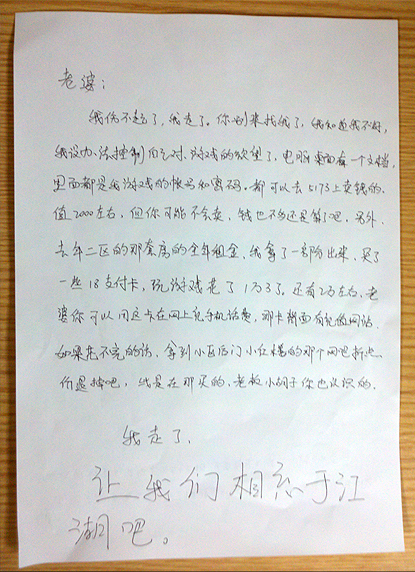 老婆：
我伤不起了，我走了。你别来找我了，我知道我不好，
我没办法控制自己对游戏的欲望了，电脑桌面有一个文档，
里面都是我游戏的帐号和密码。都可以去5173上卖钱的。
值2000左右，但你可能不会卖，钱也不多还是算了吧。另外，
去年二区的那套房的全年租金，我拿了一部份出来，买了
一些18支付卡，玩游戏花了1万3了。还有2万左右，老
婆你可以用这卡在网上充手机话费，那卡背面有充值网站
如果花不完的话，拿到小区后门小红楼的那个网吧折些
价退掉吧，我是在那买的，老板小胡子你也认识的。
我走了.
让我们相忘于江
湖吧。